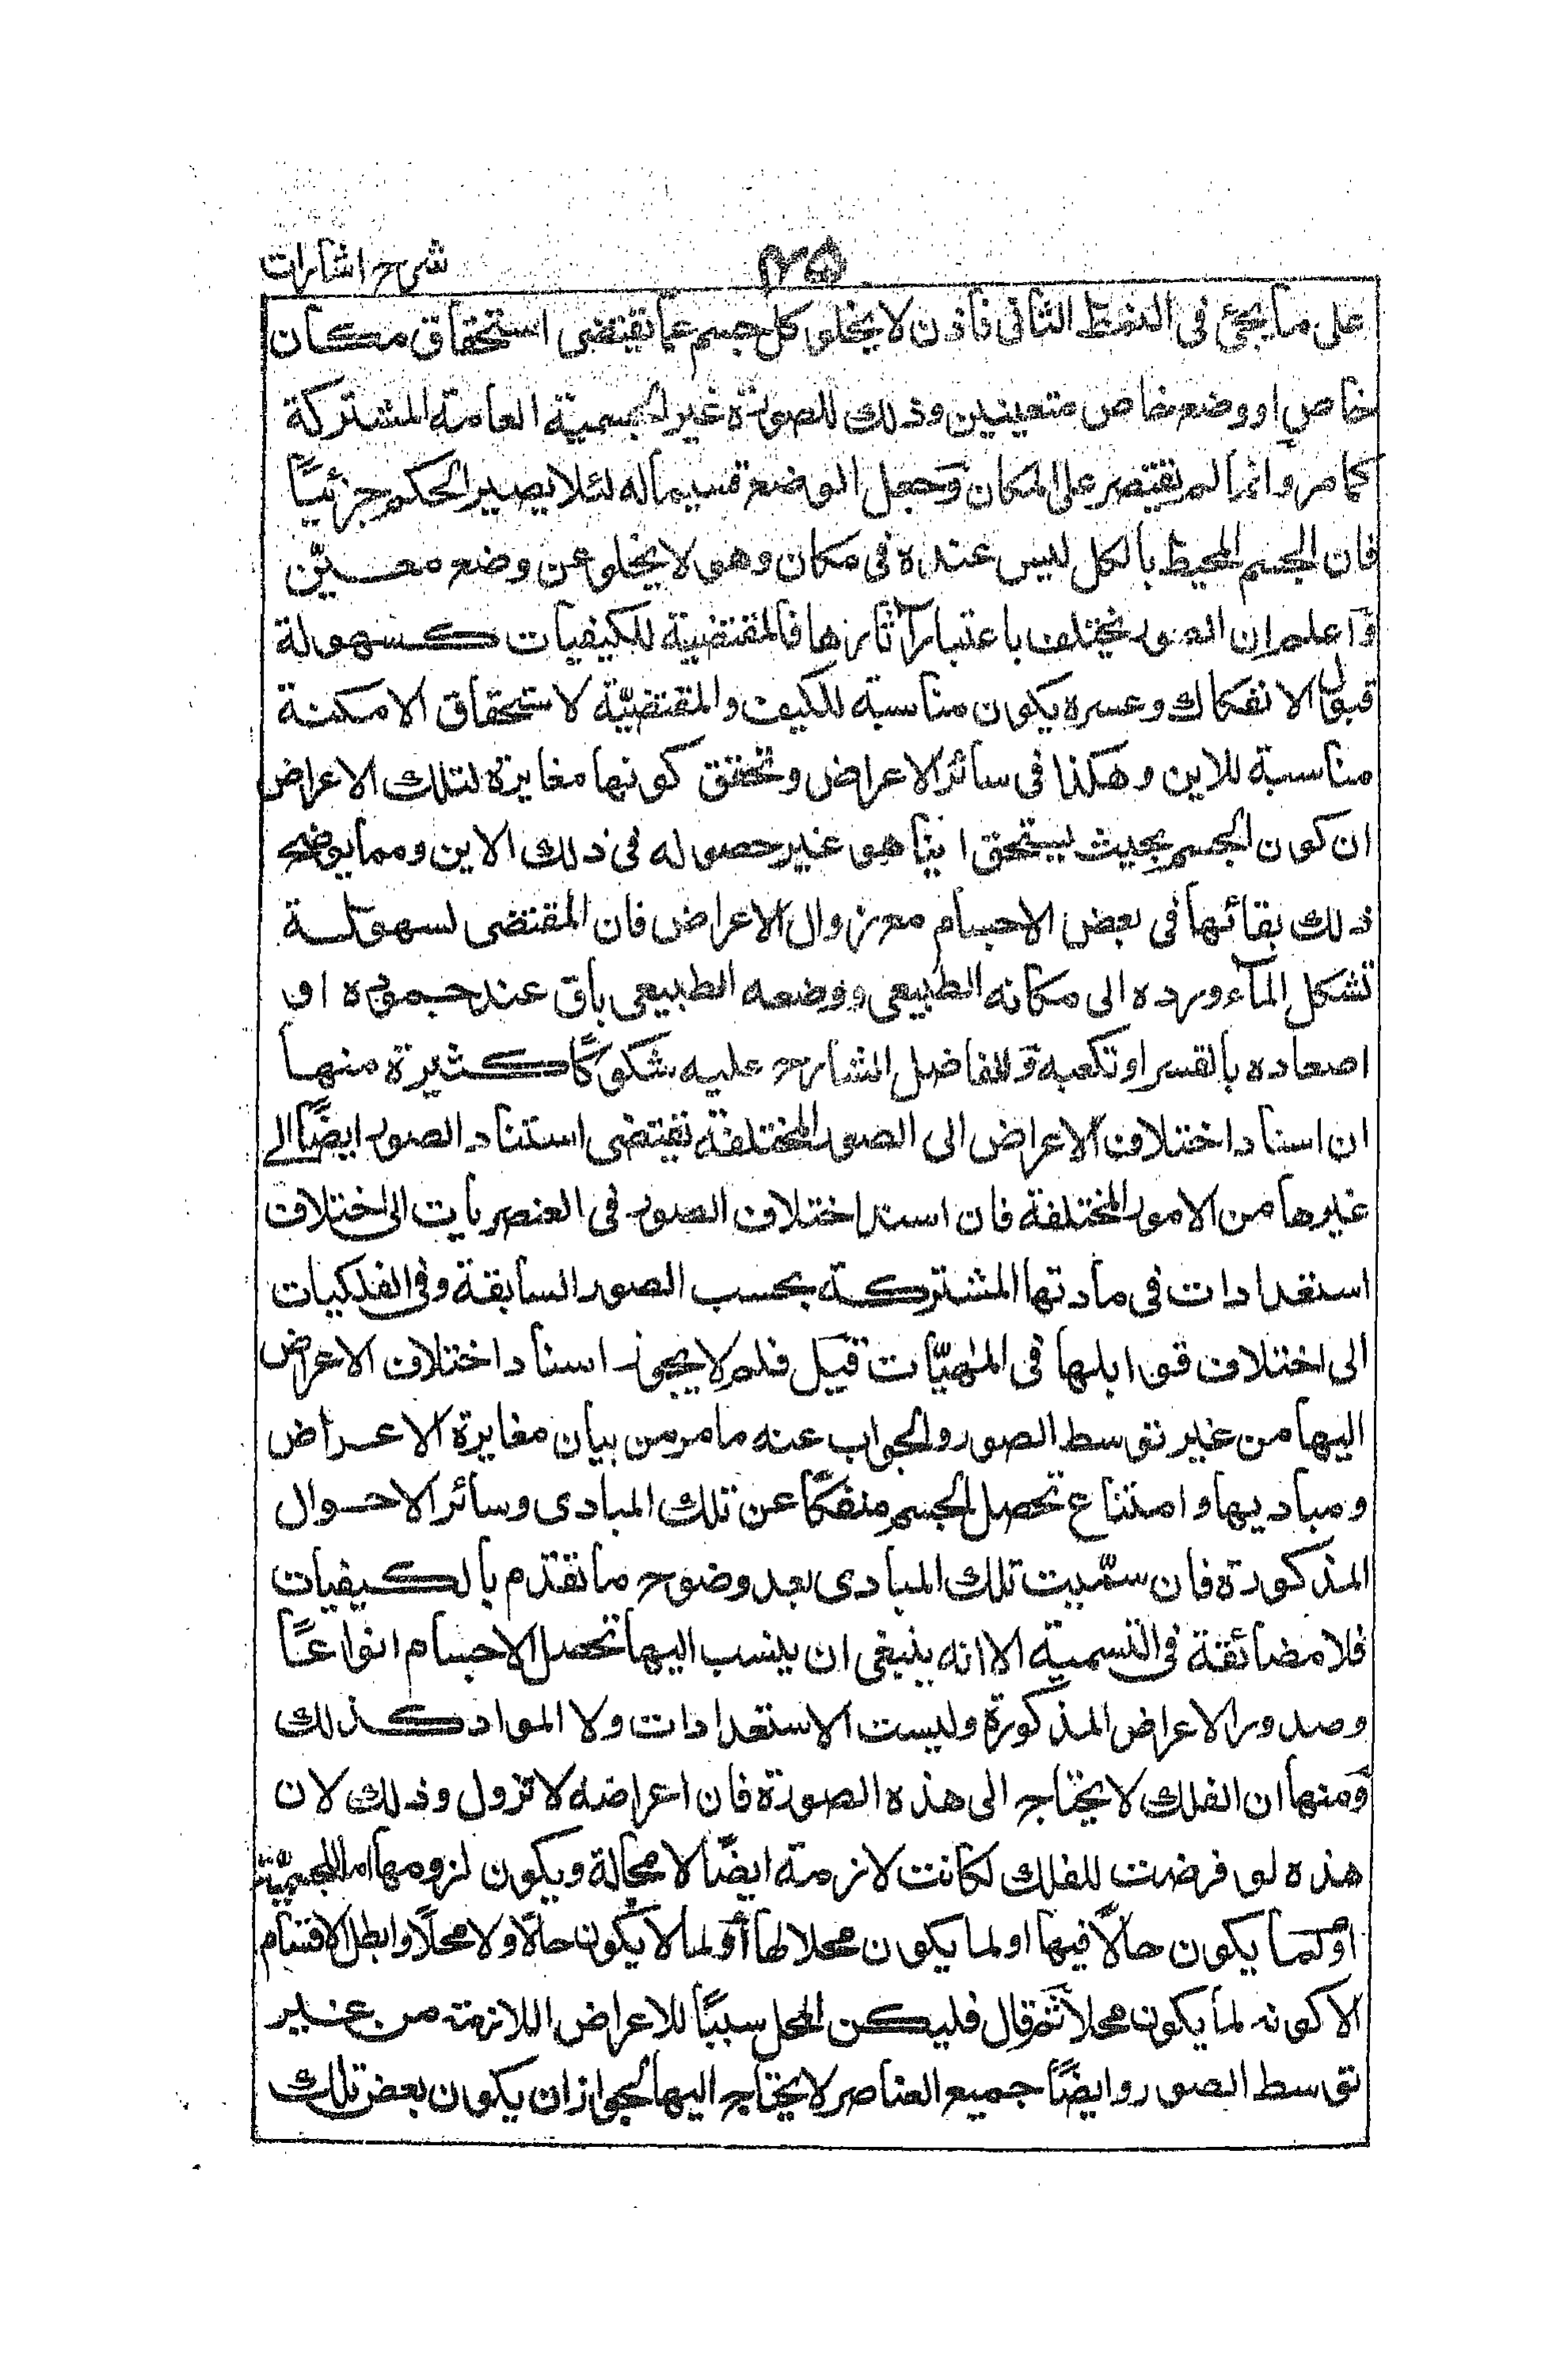 شرح اشارات
٢٥
على ما يجئ فى النمط الثانى فاذن لا يخلو كل جسم عما يقتضى استحقاق مكان
خاص او وضع خاص متعينين وذلك للصورة غير الجسمية العامة المشتركة
كما مر وانما لم يقتصر على المكان وجعل الوضع قسيما له لئلا يصير الحكم جزئيًا
فان الجسم المحيط بالكل ليس عنده فى مكان وهو لا يخلو عن وضع معيّن
واعلم ان الصور يختلف باعتبار آثارها فالمقتضية للكيفيات كسهولة
قبول الانفكاك وعسره يكون مناسبة للكيف والمقتضيّة لاستحقاق الامكنة
مناسبة للاين وهكذا فى سائر الاعراض وتحقق كونها مغايرة لتلك الاعراض
ان كون الجسم بحيث يستحق اينا هو غير حصوله فى ذلك الاين ومما يوضح
ذلك بقائها فى بعض الاجسام مع زوال الاعراض فان المقتضى لسهولة
تشكل المآء ورده الى مكانه الطبيعى ووضعه الطبيعى باق عند جموده او
اصعاده بالقسر او تكعبه وللفاضل الشارح عليه شكوكًا كثيرة منها
ان اسناد اختلاف الاعراض الى الصور المختلفة تقتضى استناد الصور ايضًا الے
غيرها من الامور المختلفة فان اسند اختلاف الصور فى العنصريات الى اختلاف
استعدادات فى مادتها المشتركة بحسب الصور السابقة وفى الفلكيات
الى اختلاف قوابلها فى المٰهيّات قيل فلم لا يجوز اسناد اختلاف الاعراض
اليها من غير توسط الصور والجواب عنه ما مر من بيان مغايرة الاعراض
ومباديها وامتناع تحصل الجسم منفكًا عن تلك المبادى وسائر الاحوال
المذكورة فان سمّيت تلك المبادى بعد وضوح ما تقدم بالكيفيات
فلا مضائقة فى التسمية الا انه ينبغى ان ينسب اليها تحصل الاجسام انواعًا
وصدور الاعراض المذكورة وليست الاستعدادات ولا المواد كذلك
ومنها ان الفلك لا يحتاج الى هذه الصورة فان اعراضه لا تزول وذلك لان
هذه لو فرضت للفلك لكانت لازمة ايضًا لا محالة ويكون لزومها اما للجسميّة
او لما يكون حالًا فيها او لما يكون محلا لها او لما لا يكون حالًا ولا محلًا وابطل الاقسام
الا كونه لما يكون محلا ثم قال فليكن المحل سببًا للاعراض اللازمة من غير
توسط الصور وايضًا جميع العناصر لا يحتاج اليها لجواز ان يكون بعض تلك